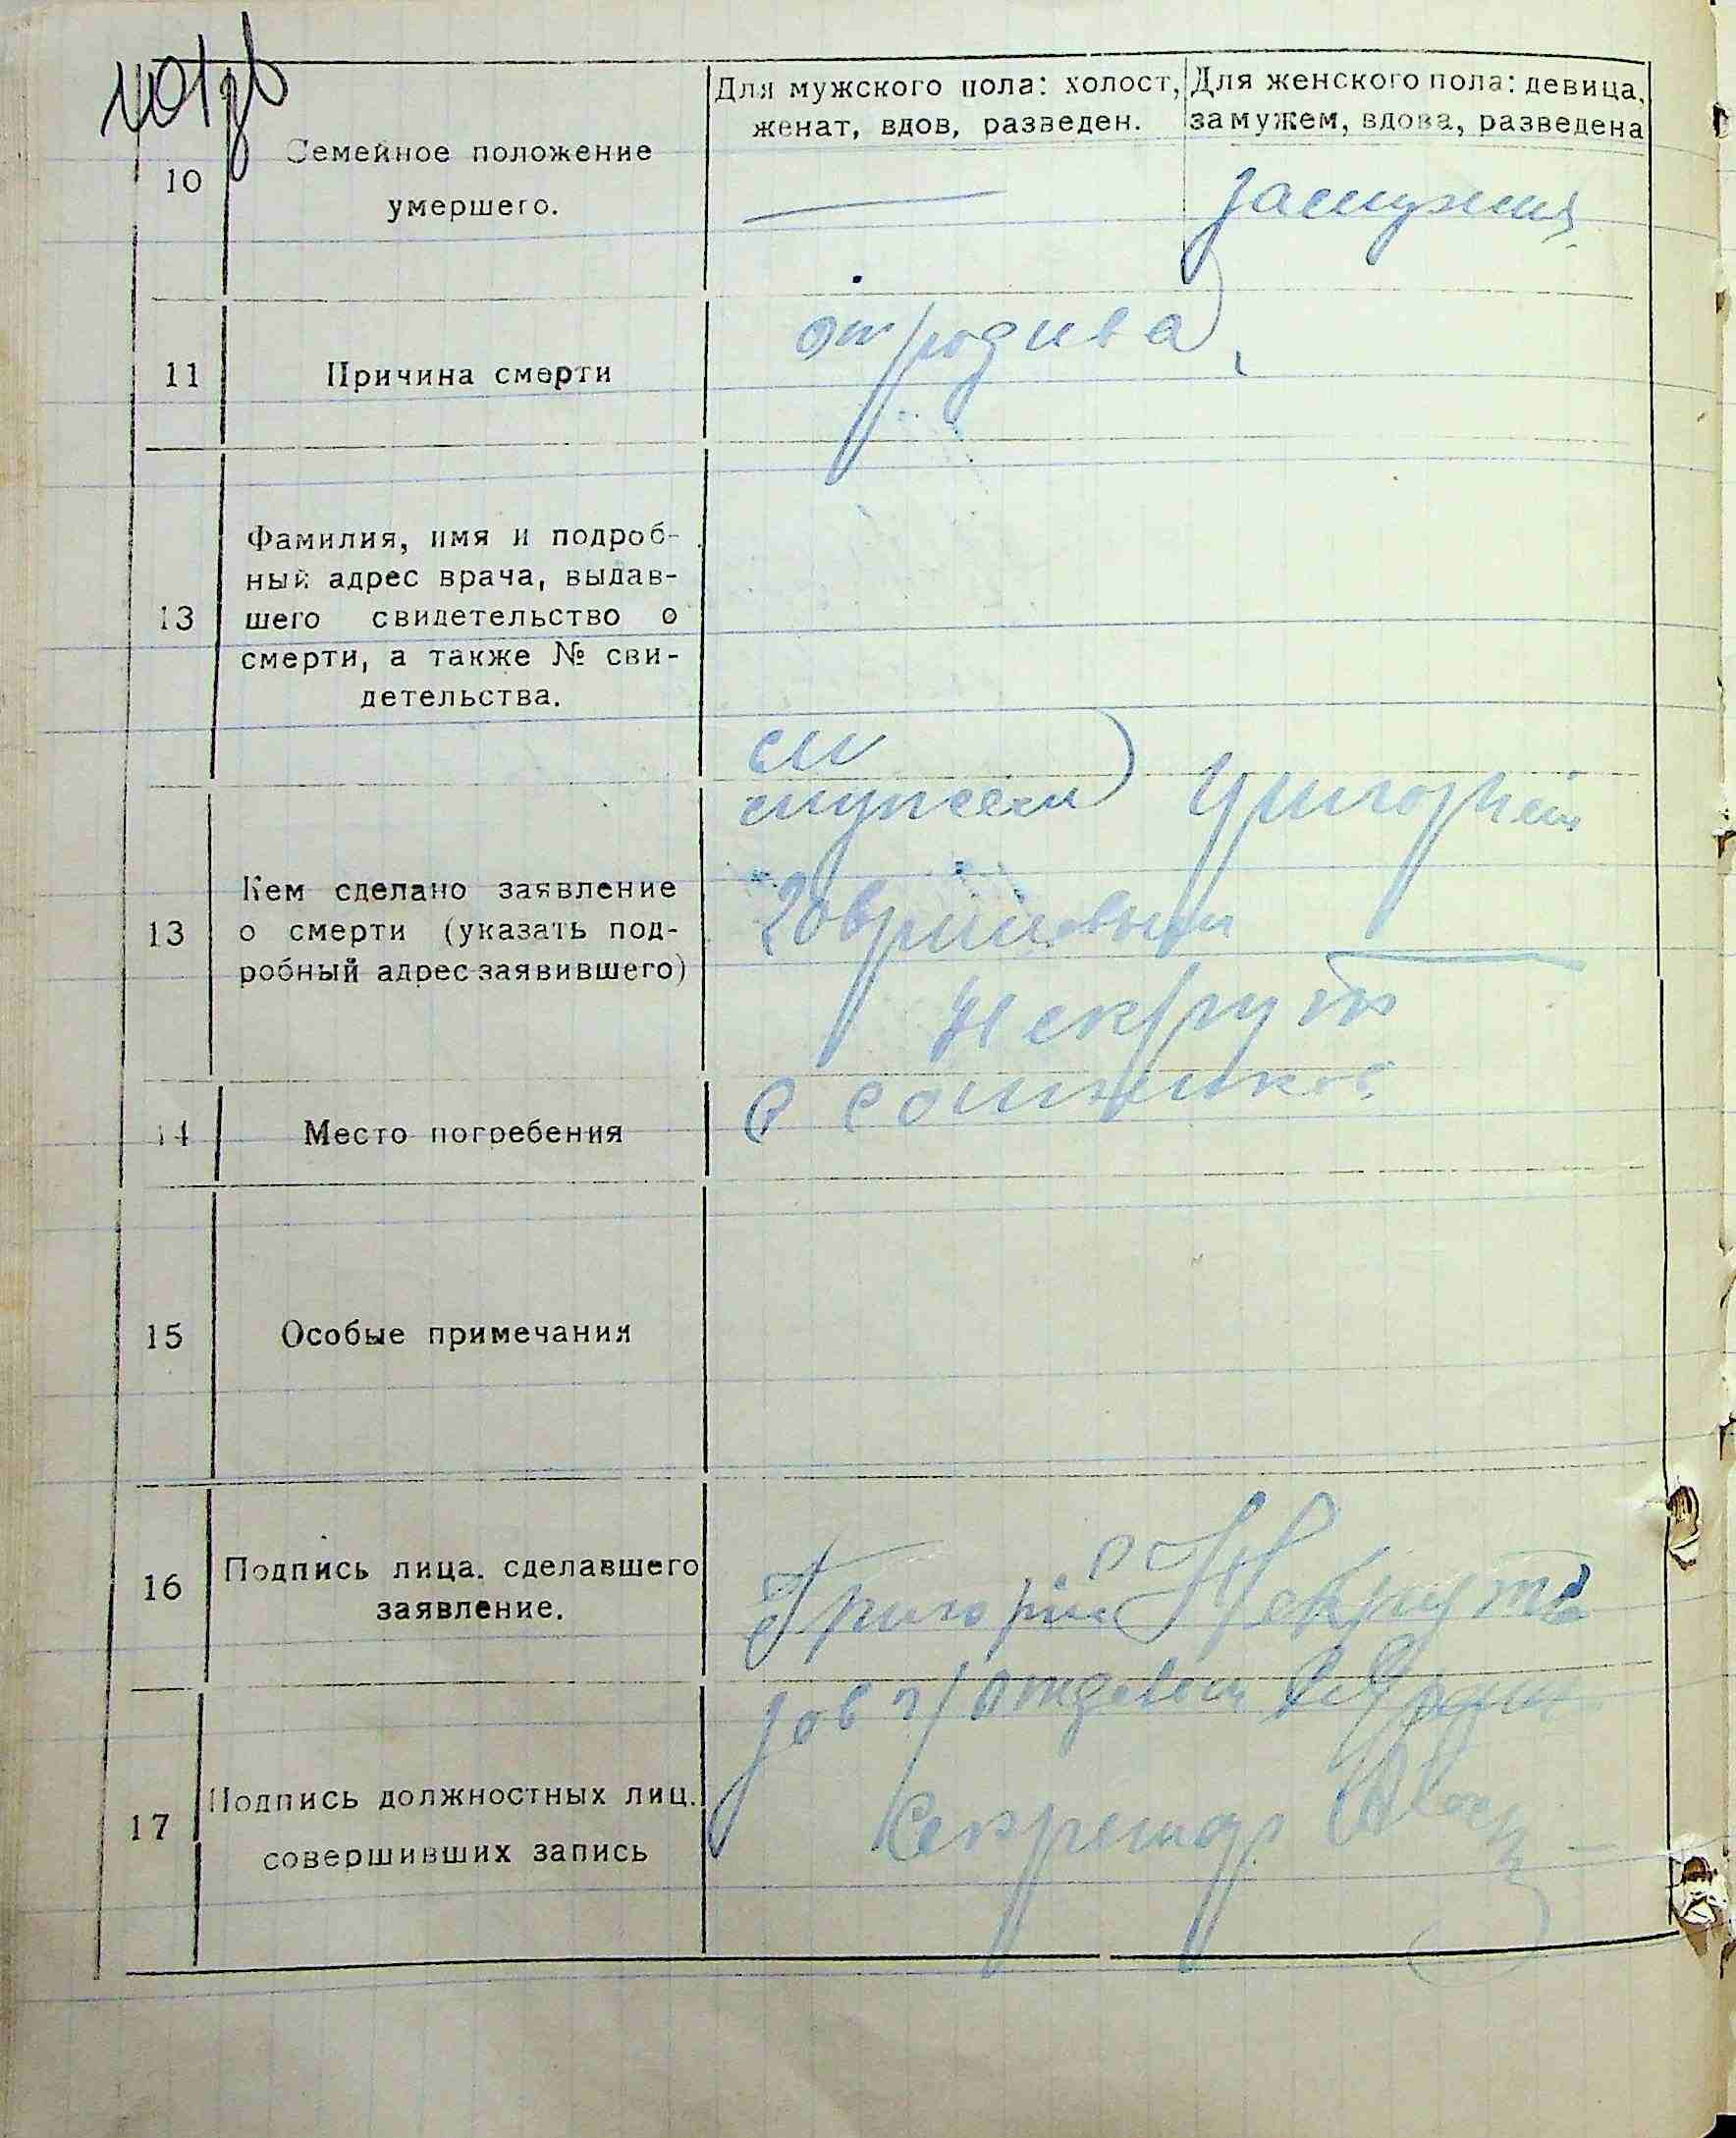 10
Семейное положение
умершего.
Для мужского пола: холост,
женат, вдов, разведен.
Для женского пола: девица,
замужем, вдова, разведена
замужняя
11
Причина смерти
от родива
13
Фамилия, имя и подроб-
ный адрес врача, выдав-
шего свидетельство о
смерти, а также № сви-
детельства.
13
Кем сделано заявление
о смерти (указать под-
робный адрес заявившего)
мужем
Некрут
14
Место погребения
с
15
Особые примечания
16
Подпись лица. сделавшего
заявление.
Григорий Некрут
17
Подпись должностных лиц.
совершивших запись
Секретар